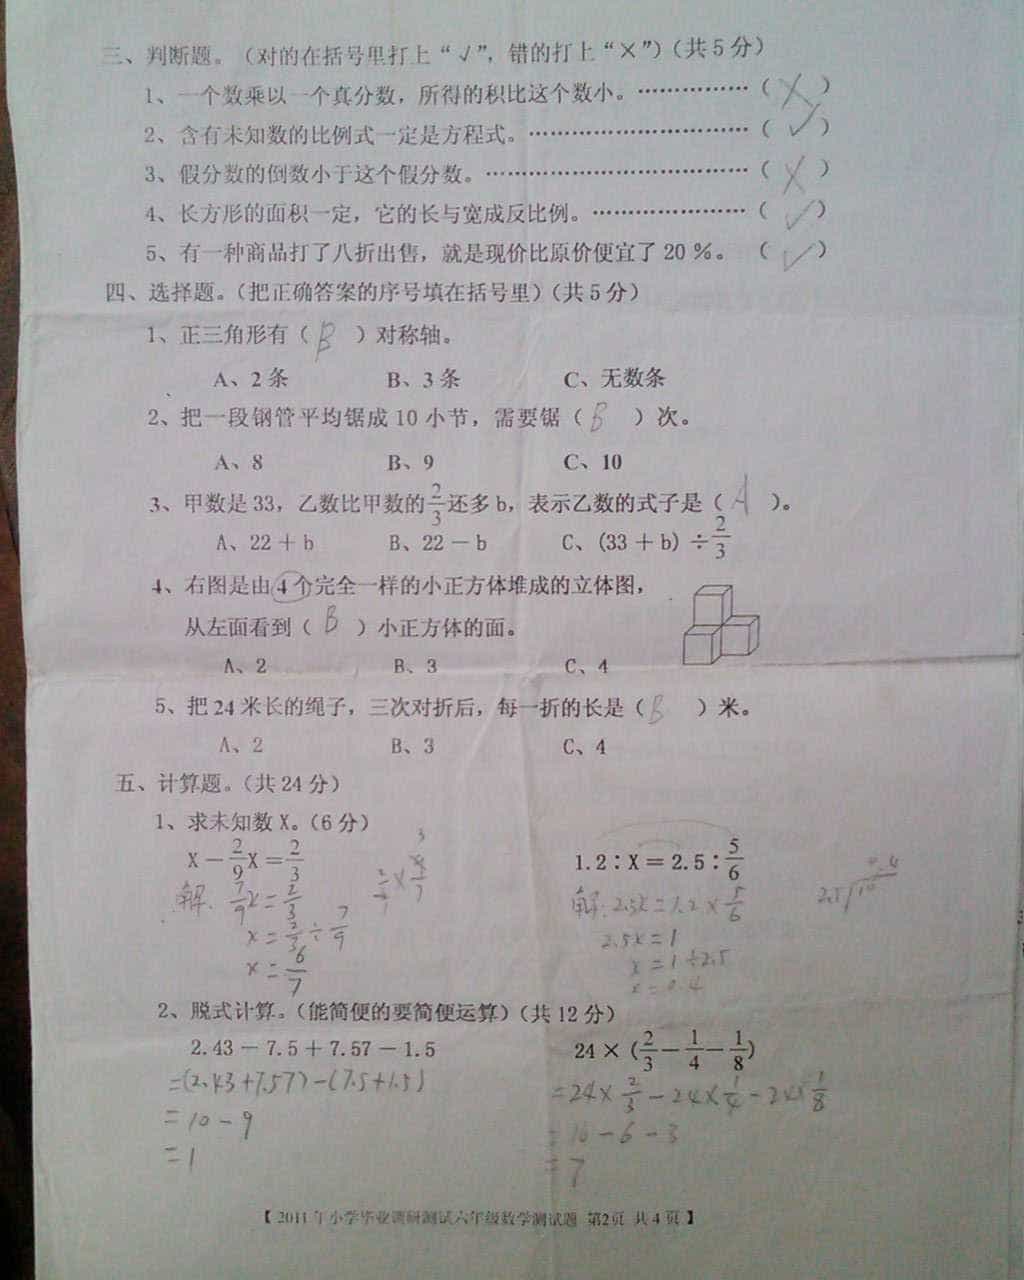 三、判断题。(对的在括号里打上“√”,错的打上“×”)(共5分)
1、一个数乘以一个真分数,所得的积比这个数小。……………(×)
2、含有未知数的比例式一定是方程式。……………………………(√)
3、假分数的倒数小于这个假分数。…………………………………(×)
4、长方形的面积一定,它的长与宽成反比例。…………………(√)
5、有一种商品打了八折出售,就是现价比原价便宜了20%。(√)
四、选择题。(把正确答案的序号填在括号里)(共5分)
1、正三角形有(B)对称轴。
A、2条 B、3条 C、无数条
2、把一段钢管平均锯成10小节,需要锯(B)次。
A、8 B、9 C、10
3、甲数是33,乙数比甲数的2/3还多b,表示乙数的式子是(A)。
A、22+b B、22-b C、(33+b)÷2/3
4、右图是由4个完全一样的小正方体堆成的立体图,
从左面看到(B)小正方体的面。
A、2 B、3 C、4
5、把24米长的绳子,三次对折后,每一折的长是(B)米。
A、2 B、3 C、4
五、计算题。(共24分)
1、求未知数X。(6分)
X-2/9X=2/3 1.2:X=2.5:5/6
解:7/9x=2/3 解:2.5x=1.2×5/6
x=2/3÷7/9 2.5x=1
x=6/7 x=1÷2.5
x=0.4
2、脱式计算。(能简便的要简便运算)(共12分)
2.43-7.5+7.57-1.5 24×(2/3-1/4-1/8)
=(2.43+7.57)-(7.5+1.5) =24×2/3-24×1/4-24×1/8
=10-9 =10-6-3
=1 =7
【2011年小学毕业调研测试六年级数学测试题 第2页 共4页】